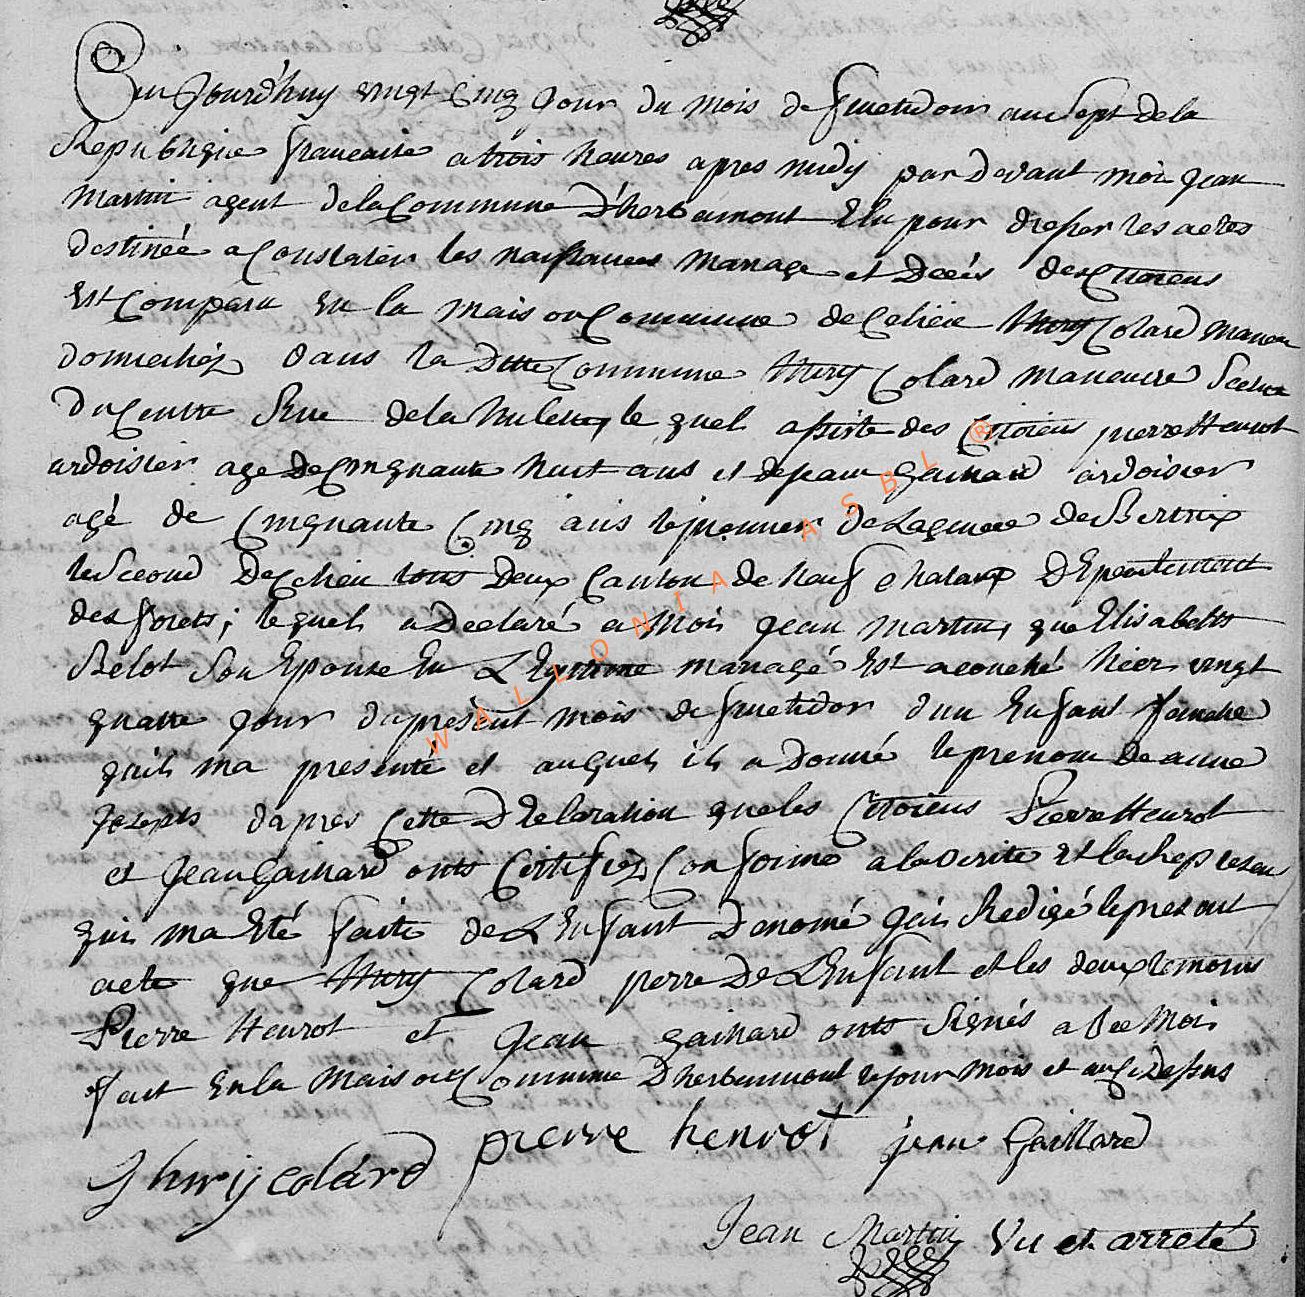 Aujourd'huy vingt Cinq Jour du mois de fructidor an Sept de la
Republique francaise a trois heures apres midy par Devant moi Jean
Martin agent de la Commune D'herbeumont Elu pour dresser les actes
destinée a Constater les naissances mariage et Décés des Citoiens
Est Comparu En la maison Commune de Colard maneu
domicilié dans la Ditte Commune Colard maneuvre
Du Centre Rue de la le quel assiste des Citoiens pierre Henrot
ardoisier age de Cinquante huit ans et de jean gaillard ardoisier
agé de Cinquante Cinq ans le premier De de Bertrix
le Second De tous Deux Canton de neuf chataux Département
des forets; lequel a Declaré a Moi Jean Martin, que Elisabeth
Belot Son Epouse En Legitime mariagé Est acouché hier vingt
quatre jour du présent mois de fructidor d'un Enfant femelle
quil ma présenté et auquel il a Donné le prenom de anne
Joseph dapres Cette Déclaration que les Citoiens Pierre Henrot
et Jean Gaillard onts Certifiéz Conforme a la verité Et la Represen
qui ma Eté faite de L'Enfant Denomé jai Redigé le present
acte que Colard perre De L'Enfant et les deux temoins
Pierre Henrot et Jean gaillard onts Signés avec Moi
fait En la maison Commune D'herbeumont le jour mois et an Ci Dessus
colard pierre henrot jean Gaillard
Jean Martin Vu et arreté
WALLONIA ASBL ®